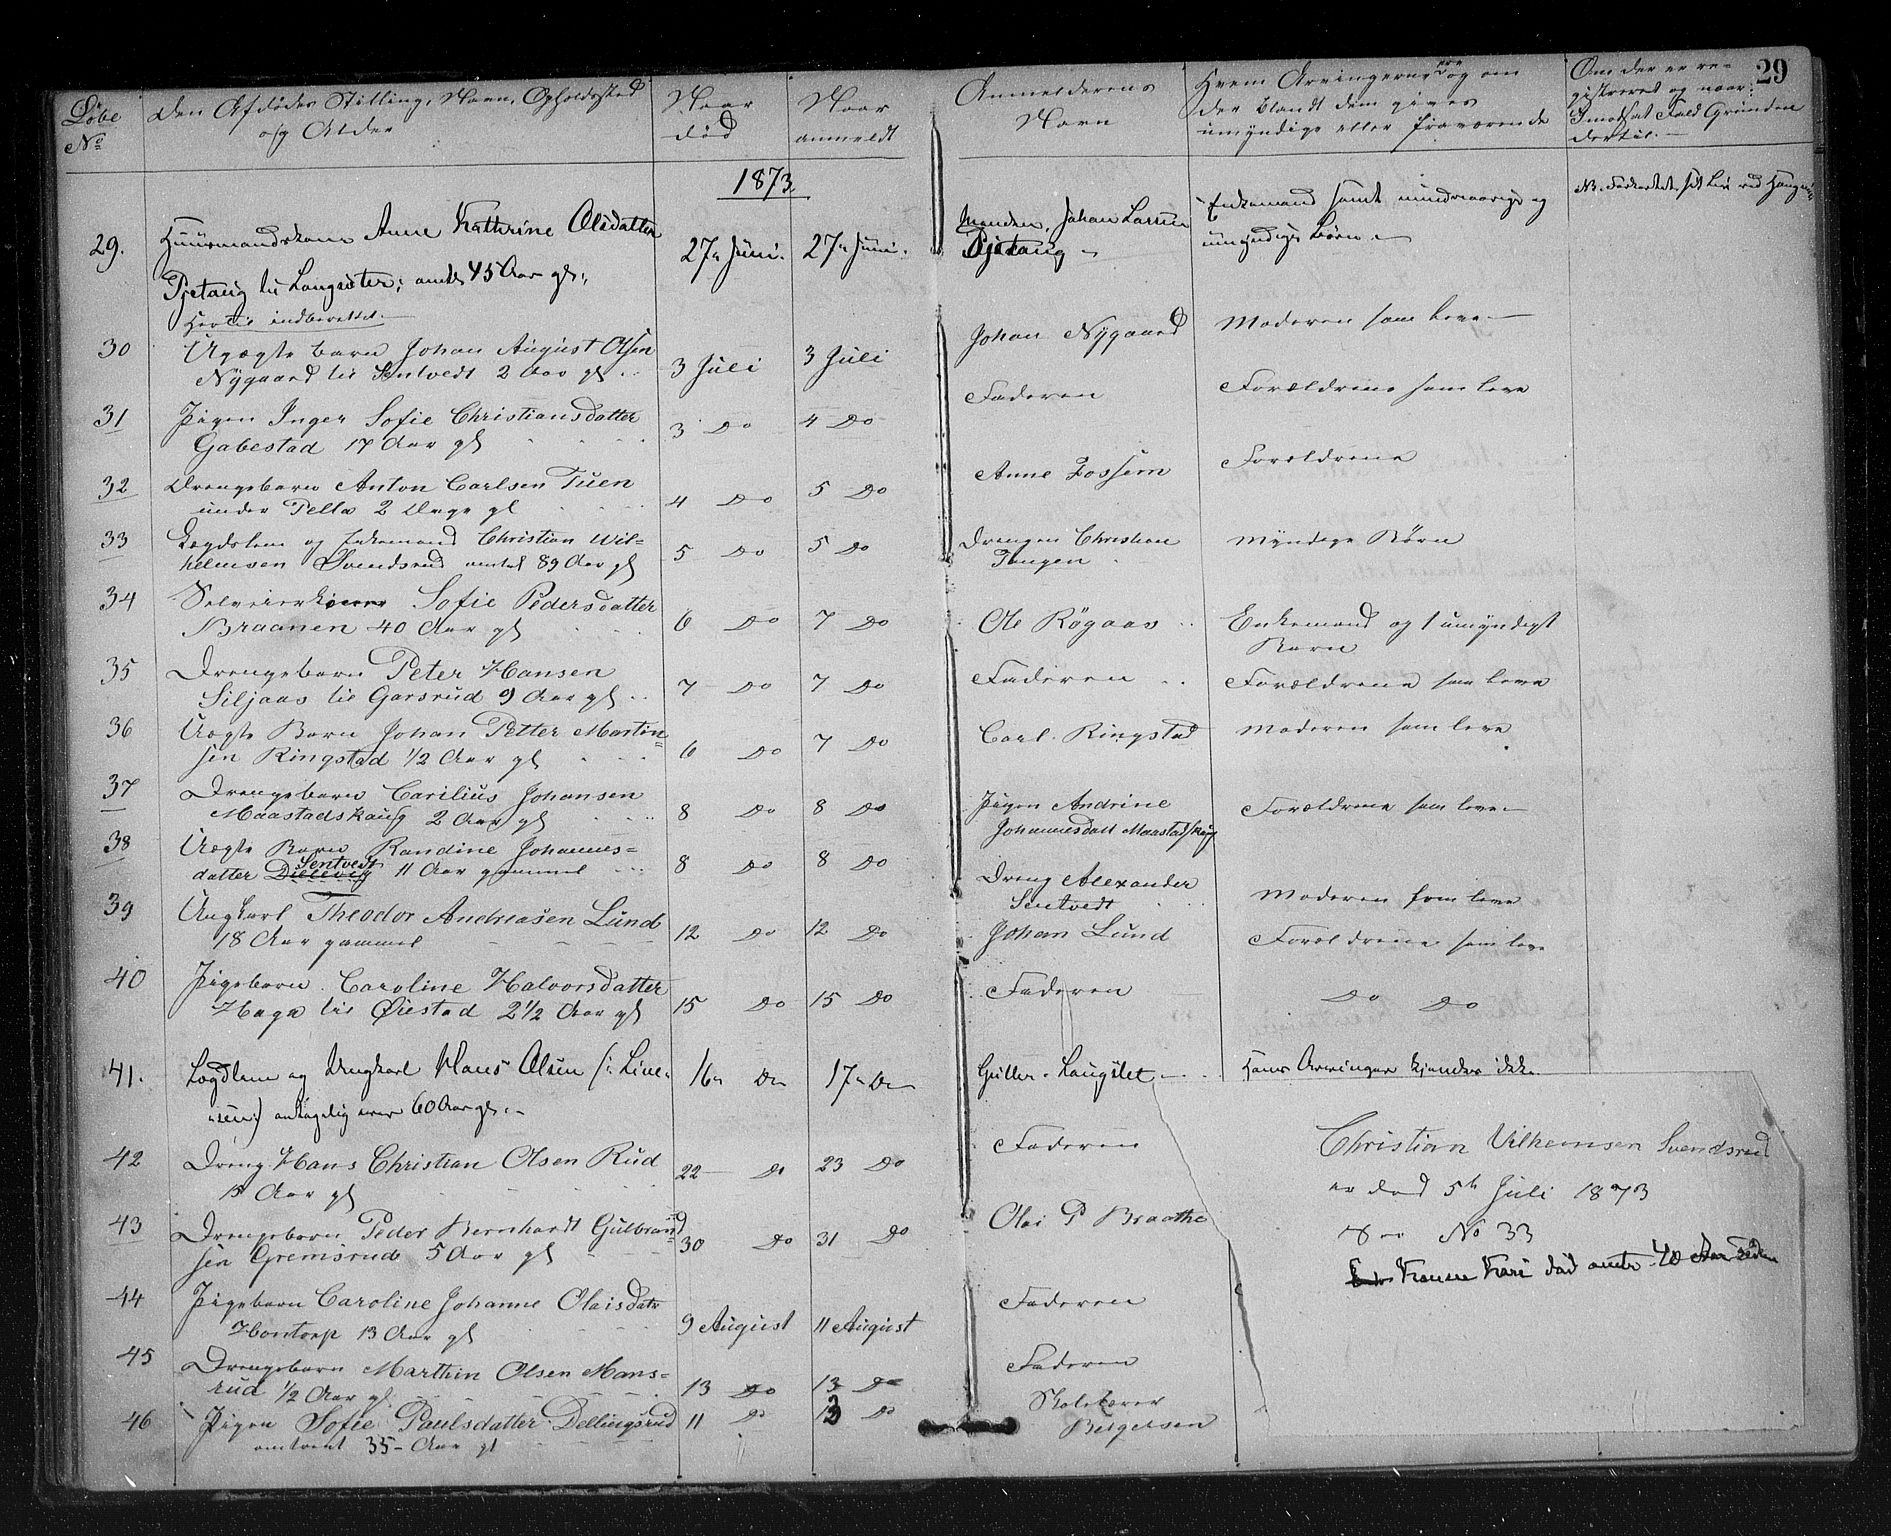 29
Løbe No
Den Afdødes Stilling, Navn, Opholdssted og Alder
Naar død
Naar anmeldt
Anmelderens Navn
Hvem Arvingerne ere og om der blandt dem gives umyndige eller fraværende
Om der er registreret og naar; Imodsat Fald Grunden dertil.
1873
29. Huusmandskone Anne Kathrine Olsdatter
27de Juni. 27de Juni.
Manden, Johan Larsen
Enkemand samt mindreaarige og
umyndige Børn.
NB. Forkortet sit Liv ved
Pjetaug
Pjetaug u Langsæter; omtr 45 Aar gl;
Hertil indberettet.
30 Uægte barn Johan August Olsen
Nygaard u Sentvedt 2 Aar gl
3 Juli 3 Juli
Johan Nygaard
Moderen som leve
31 Pigen Inger Sofie Christiansdatter
Gabestad 17 Aar gl
3 Do 4 Do
Faderen
Forældrene som leve
32 Drengebarn Anton Carlsen Tuen
under Pella 2 Dage gl
4 Do 5 Do
Anne Fossum
Forældrene
33 Lægdslem og Enkemand Christian Wil=
helmsen Svendsrud omtrt 89 Aar gl
5 Do 5 Do
Drengen Christian
Tangen
Myndige Børn
34 Selveierkone Sofie Pedersdatter
Braanen 40 Aar gl
6 Do 7 Do
Ole Røgaas
Enkemand og 1 umyndigt
Barn
35 Drengebarn Peter Hansen
Siljaas u Garsrud 9 Aar gl
7 Do 7 Do
Faderen
Forældrene som leve
36 Uægte Barn Johan Petter Martin=
sen Ringstad 1/2 Aar gl
6 Do 7 Do
Carl Ringstad
Moderen som leve
37 Drengebarn Carilius Johansen
Maastadskaug 2 Aar gl
8 Do 8 Do
Pigen Andrine
Johannesdatt Maastadskaug
Forældrene som leve
38 Uægte Barn Randine Johannes=
datter Sentvedt 11 Aar gammel
8 Do 8 Do
Dreng Alexander
Sentvedt
Moderen som leve
39 Ungkarl Theodor Andreasen Lund
18 Aar gammel
12 Do 12 Do
Johan Lund
Forældrene som leve
40 Pigebarn Caroline Halvorsdatter
Haga u Øiestad 2 1/2 Aar gl
15 Do 15 Do
Faderen
Do Do
41. Lægdlem og Ungkarl Hans Olsen (: Line-
sen:) antagelig over 60 Aar gl.
16de Do 17de Do
Gutten Langslet
Hans Arvinger kjendes ikke
42 Dreng Hans Christian Olsen Rud
15 Aar gl
22 Do 23 Do
Faderen
43 Drengebarn Peder Bernhardt Gulbrand=
sen Gremsrud 5 Aar gl
30 Do 31 Do
Olai P Braathe
44 Pigebarn Caroline Johanne Olaisdatr
Hontorp 13 Aar gl
9 August 11 August
Faderen
45 Drengebarn Marthin Olsen Mans=
rud 1/2 Aar gl
13 Do 13 Do
Faderen
46 Pigen Sofie Paulsdatter Dellingsrud
omtrent 35 Aar gl
11 Do 13 Do
Skolelærer
Bergersen
Christian Vilhemsen Svendsrud
er død 5te Juli 1873
No 33
Konen Kari død omtr 40 Aar siden